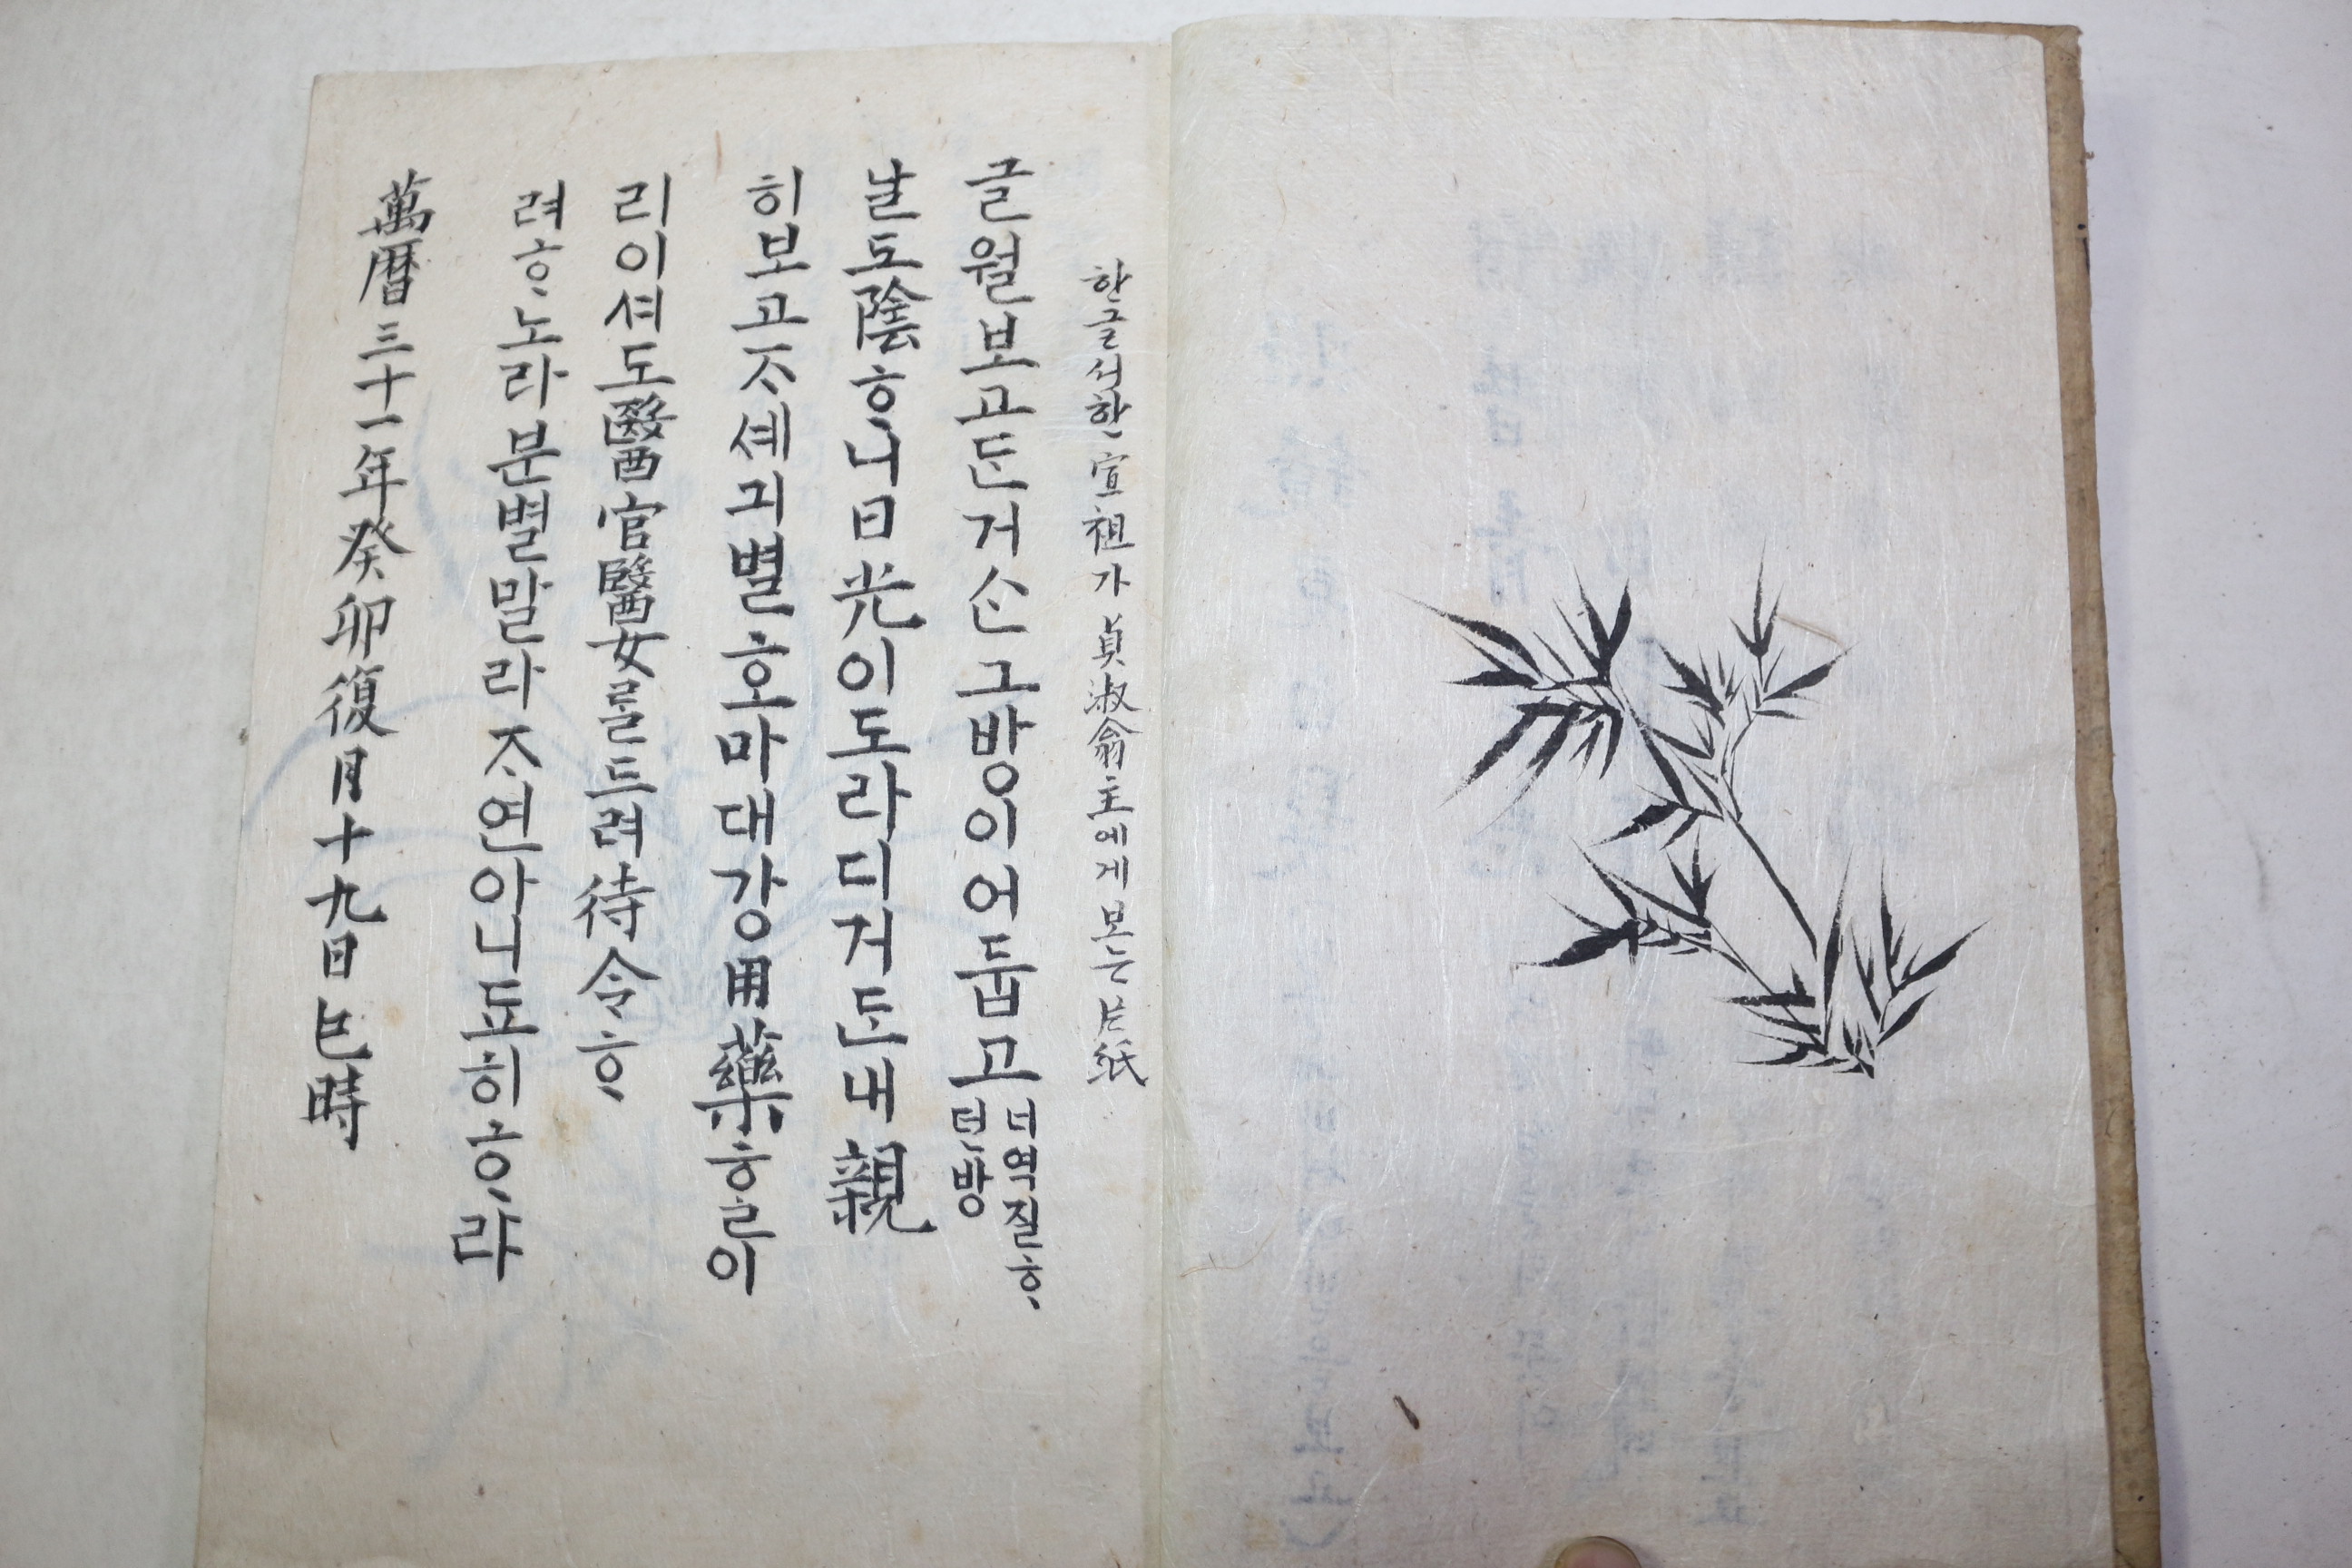 한글서한 宣祖가 貞淑翁主에게 보는 片紙
글월보고든거ᄉᆞᆫ그방이어둡고 너역질ᄒᆞ
던방
날도陰ᄒᆞ니日光이도라디거든내親
히보고ᄌᆞ셰긔별호마대강用藥ᄒᆞᆯ이
리이셔도醫官醫女를드려待令ᄒᆞ
려ᄒᆞ노라분별말라ᄌᆞ연아니됴히ᄒᆞ랴
萬曆三十一年癸卯復月十九日巳時